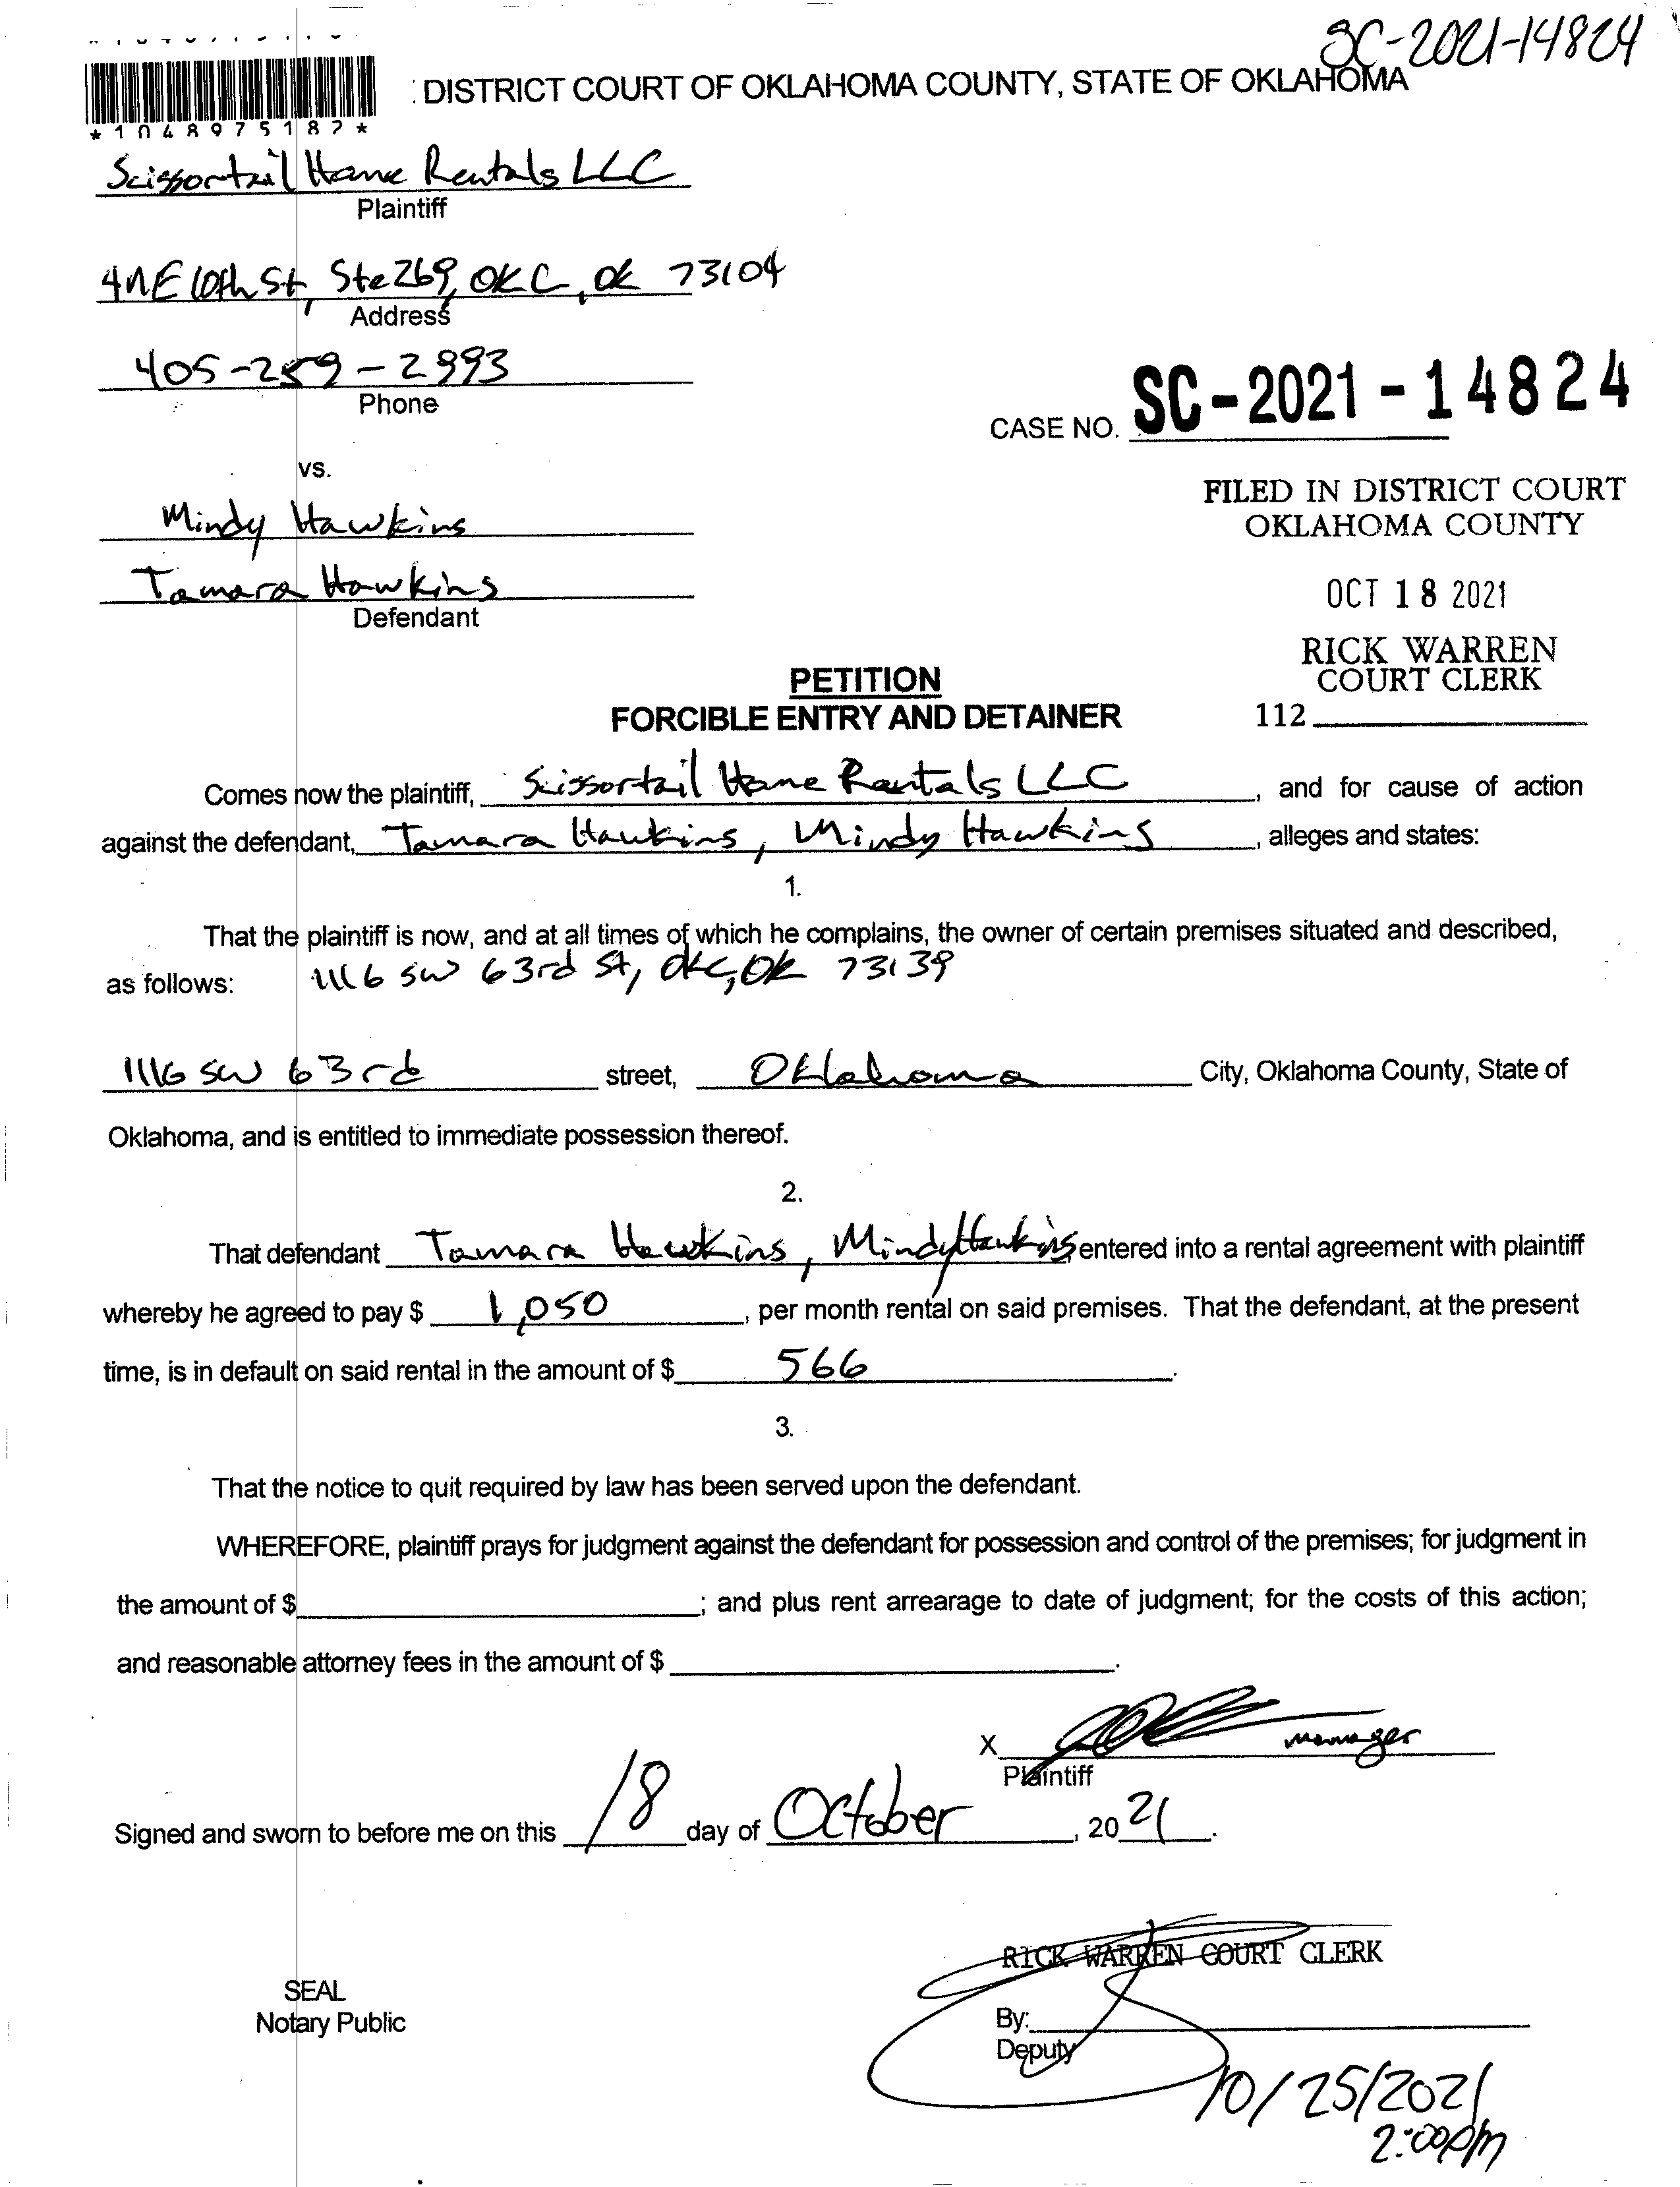 SC-2021-14824
: DISTRICT COURT OF OKLAHOMA COUNTY, STATE OF OKLAHOMA
*1048975182*
Scissortail Home Rentals LLC
Plaintiff
4 NE 10th St, Ste 269, OKC, OK 73104
Address
405-259-2993
Phone
CASE NO. SC-2021-14824
vs.
FILED IN DISTRICT COURT
OKLAHOMA COUNTY
Mindy Hawkins
Tamara Hawkins
Defendant
OCT 18 2021
RICK WARREN
COURT CLERK
112
PETITION
FORCIBLE ENTRY AND DETAINER
Comes now the plaintiff, Scissortail Home Rentals LLC, and for cause of action
against the defendant, Tamara Hawkins, Mindy Hawkins, alleges and states:
1.
That the plaintiff is now, and at all times of which he complains, the owner of certain premises situated and described,
as follows: 1116 SW 63rd St, OKC, OK 73139
1116 SW 63rd street, Oklahoma City, Oklahoma County, State of
Oklahoma, and is entitled to immediate possession thereof.
2.
That defendant Tamara Hawkins, Mindy Hawkins entered into a rental agreement with plaintiff
whereby he agreed to pay $ 1,050, per month rental on said premises. That the defendant, at the present
time, is in default on said rental in the amount of $ 566.
3.
That the notice to quit required by law has been served upon the defendant.
WHEREFORE, plaintiff prays for judgment against the defendant for possession and control of the premises; for judgment in
the amount of $ ; and plus rent arrearage to date of judgment; for the costs of this action;
and reasonable attorney fees in the amount of $ .
X manager
Plaintiff
Signed and sworn to before me on this 18 day of October, 2021.
RICK WARREN COURT CLERK
SEAL
Notary Public
By:
Deputy
10/25/2021
2:00pm